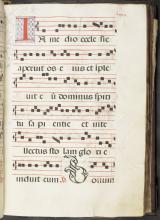 In me dio eccle sie
aperuit os e ius et iple
uit e ū dominus spiri
tu sa pi entie et inte
llectus sto lam glo ri e
induit eum